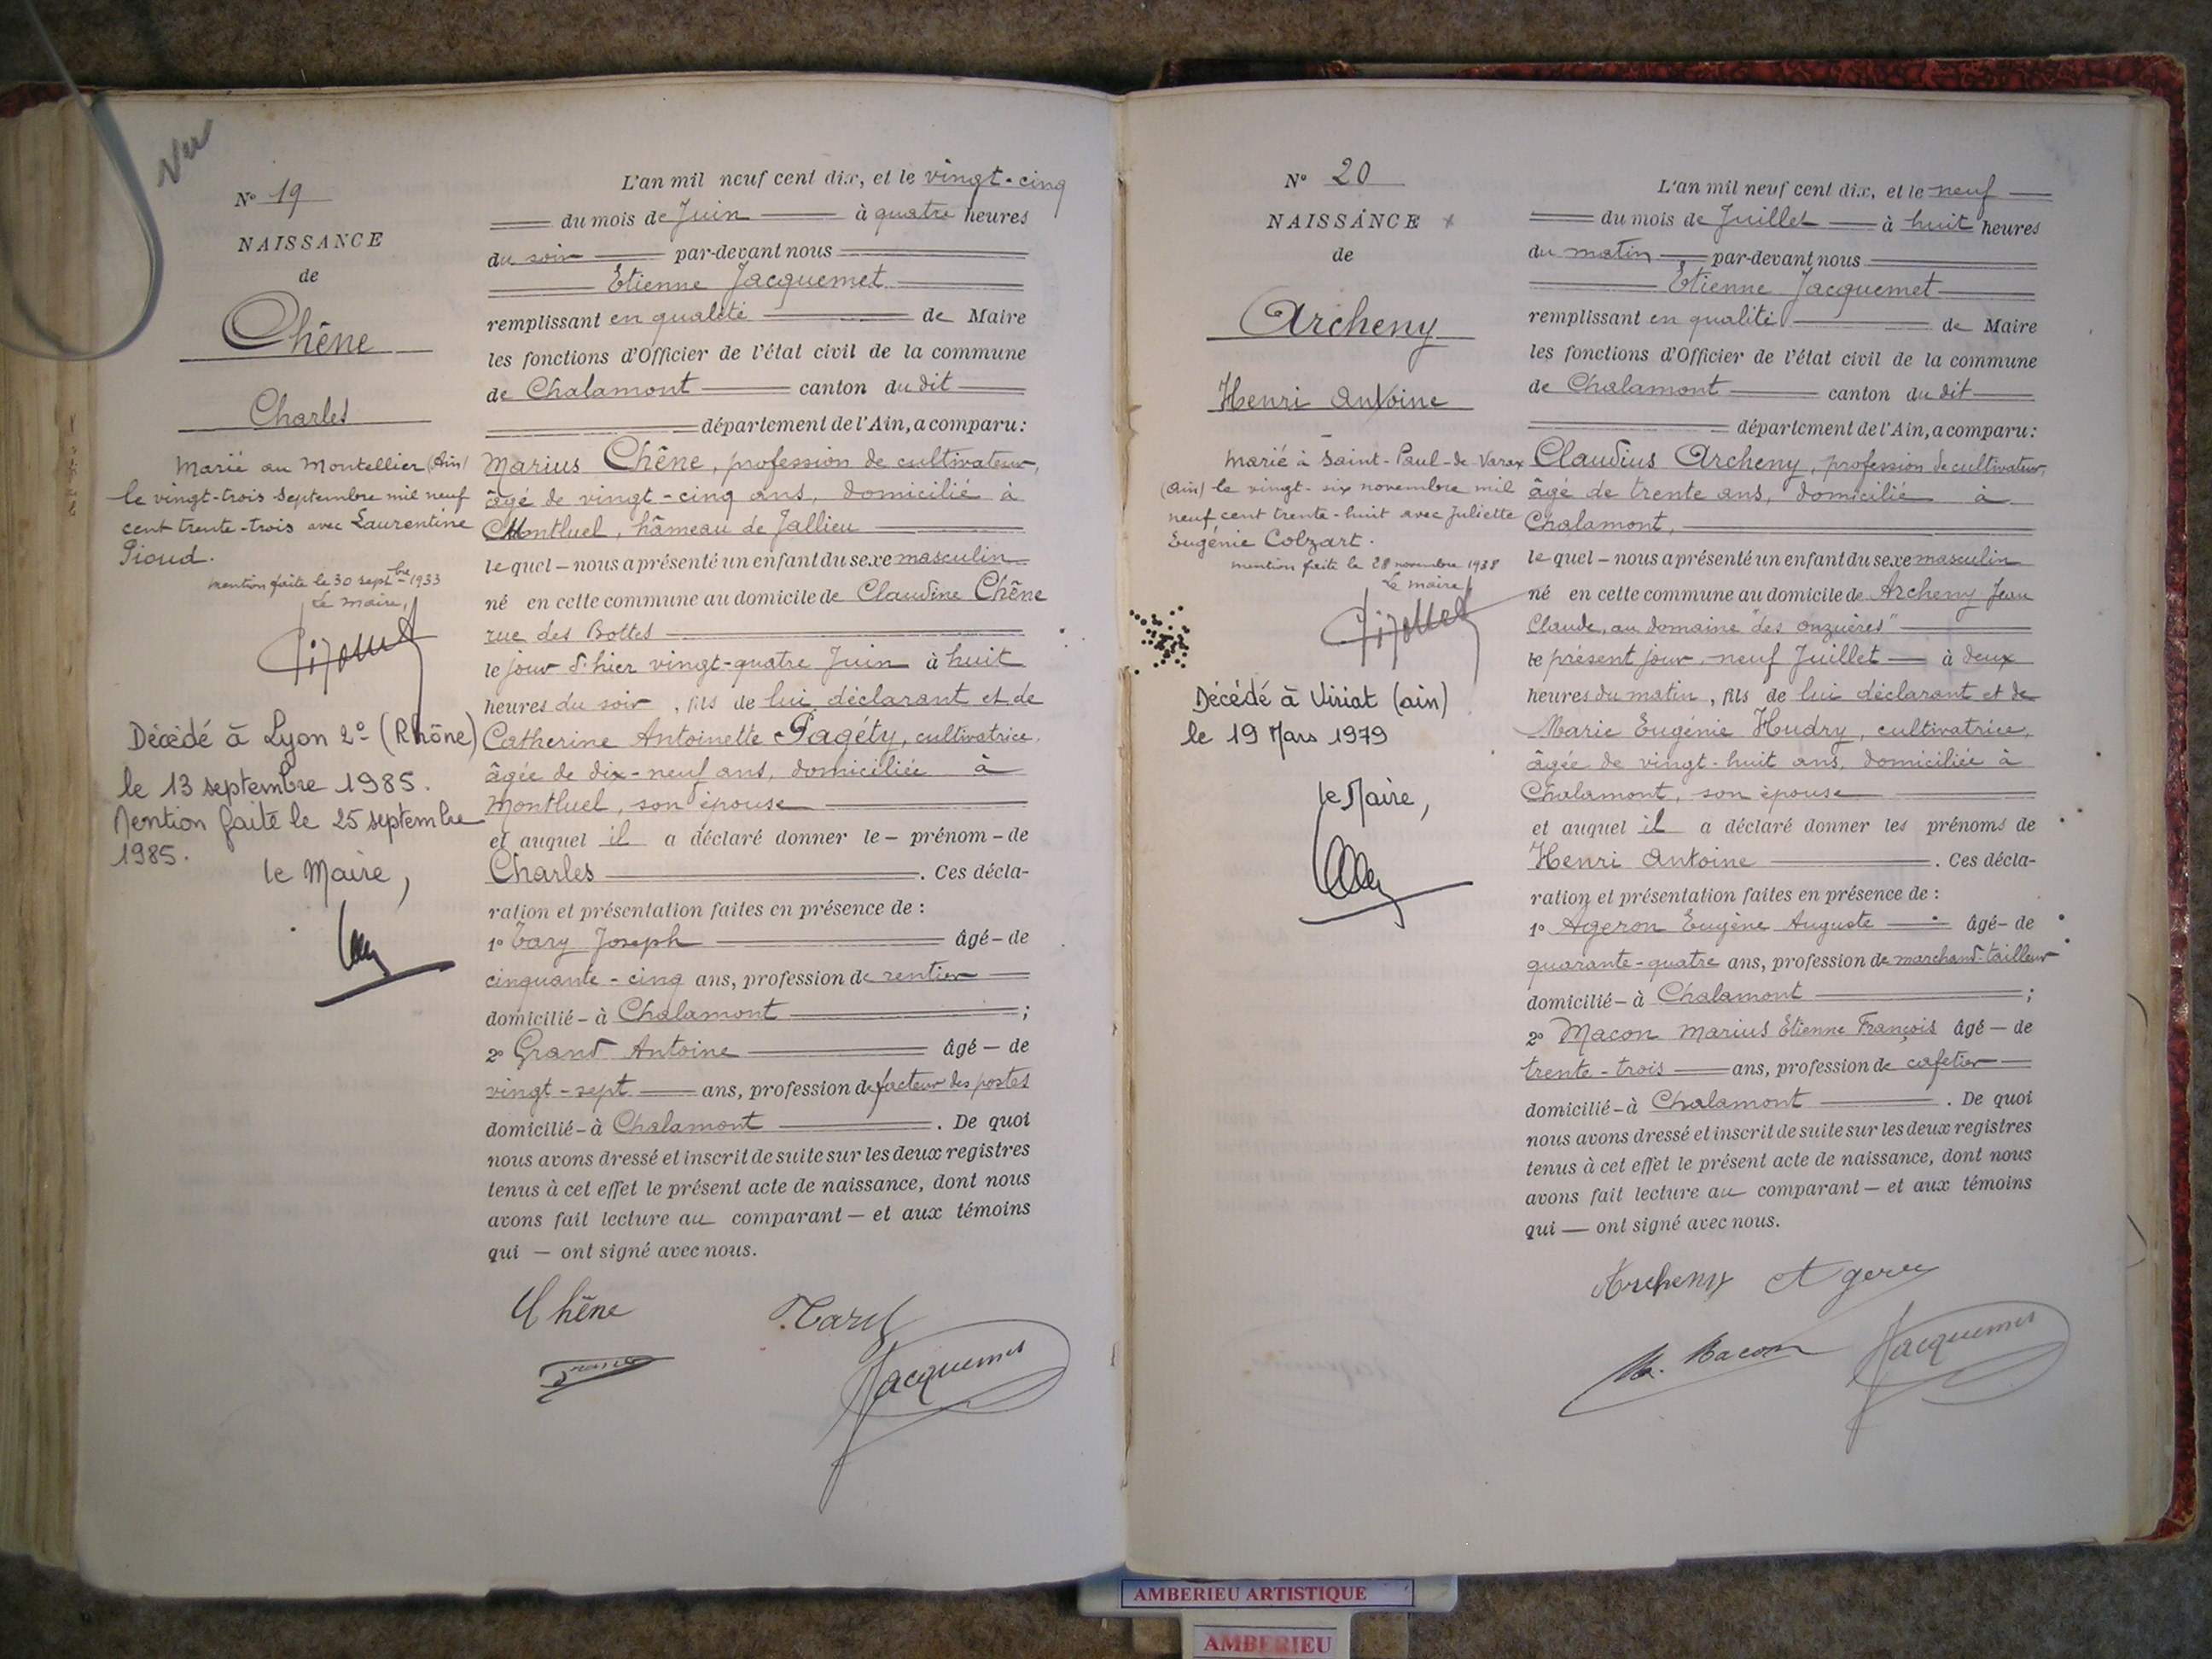 Vu
N° 19
NAISSANCE
de
Chêne
Charles
Marié au Montellier (Ain)
le vingt-trois Septembre mil neuf
cent trente-trois avec Laurentine
Pioud.
mention faite le 30 septbre 1933
Le maire,
Décédé à Lyon 2e (Rhône)
le 13 septembre 1985.
Mention faite le 25 septembre
1985.
le Maire,
L'an mil neuf cent dix, et le vingt-cinq
du mois de Juin à quatre heures
du soir par-devant nous
Etienne Jacquemet
remplissant en qualité de Maire
les fonctions d'Officier de l'état civil de la commune
de Chalamont canton du dit
département de l'Ain, a comparu:
Marius Chêne, profession de cultivateur,
âgé de vingt-cinq ans, domicilié à
Montluel, hâmeau de Jallieu
le quel – nous a présenté un enfant du sexe masculin
né en cette commune au domicile de Claudine Chêne
rue des Bottes
le jour d'hier vingt-quatre Juin à huit
heures du soir, fils de lui déclarant et de
Catherine Antoinette Pagéty, cultivatrice,
âgée de dix-neuf ans, domiciliée à
Montluel, son épouse
et auquel il a déclaré donner le – prénom – de
Charles. Ces décla-
ration et présentation faites en présence de :
1° Tary Joseph âgé – de
cinquante-cinq ans, profession de rentier
domicilié – à Chalamont ;
2° Grand Antoine âgé – de
vingt-sept ans, profession de facteur des postes
domicilié – à Chalamont. De quoi
nous avons dressé et inscrit de suite sur les deux registres
tenus à cet effet le présent acte de naissance, dont nous
avons fait lecture au comparant – et aux témoins
qui – ont signé avec nous.
Chêne
Jacquemet
N° 20
NAISSANCE
de
Archeny
Henri Antoine
Marié à Saint-Paul-de-Varax
(Ain) le vingt-six novembre mil
neuf cent trente-huit avec Juliette
Eugénie Colzart.
mention faite le 28 novembre 1938
Le maire
Décédé à Viriat (ain)
le 19 Mars 1979
le Maire,
L'an mil neuf cent dix, et le neuf
du mois de Juillet à huit heures
du matin par-devant nous
Etienne Jacquemet
remplissant en qualité de Maire
les fonctions d'Officier de l'état civil de la commune
de Chalamont canton du dit
département de l'Ain, a comparu:
Claudius Archeny, profession de cultivateur,
âgé de trente ans, domicilié à
Chalamont,
le quel – nous a présenté un enfant du sexe masculin
né en cette commune au domicile de Archeny Jean
Claude, au domaine "des onzuères"
le présent jour, neuf Juillet à deux
heures du matin, fils de lui déclarant et de
Marie Eugénie Hudry, cultivatrice,
âgée de vingt-huit ans, domiciliée à
Chalamont, son épouse
et auquel il a déclaré donner les prénoms de
Henri Antoine. Ces décla-
ration et présentation faites en présence de :
1° Ageron Eugène Auguste âgé – de
quarante-quatre ans, profession de marchand-tailleur
domicilié – à Chalamont ;
2° Macon Marius Etienne François âgé – de
trente-trois ans, profession de cafetier
domicilié – à Chalamont. De quoi
nous avons dressé et inscrit de suite sur les deux registres
tenus à cet effet le présent acte de naissance, dont nous
avons fait lecture au comparant – et aux témoins
qui – ont signé avec nous.
Archeny
M. Macon Jacquemet
AMBERIEU ARTISTIQUE
AMBERIEU